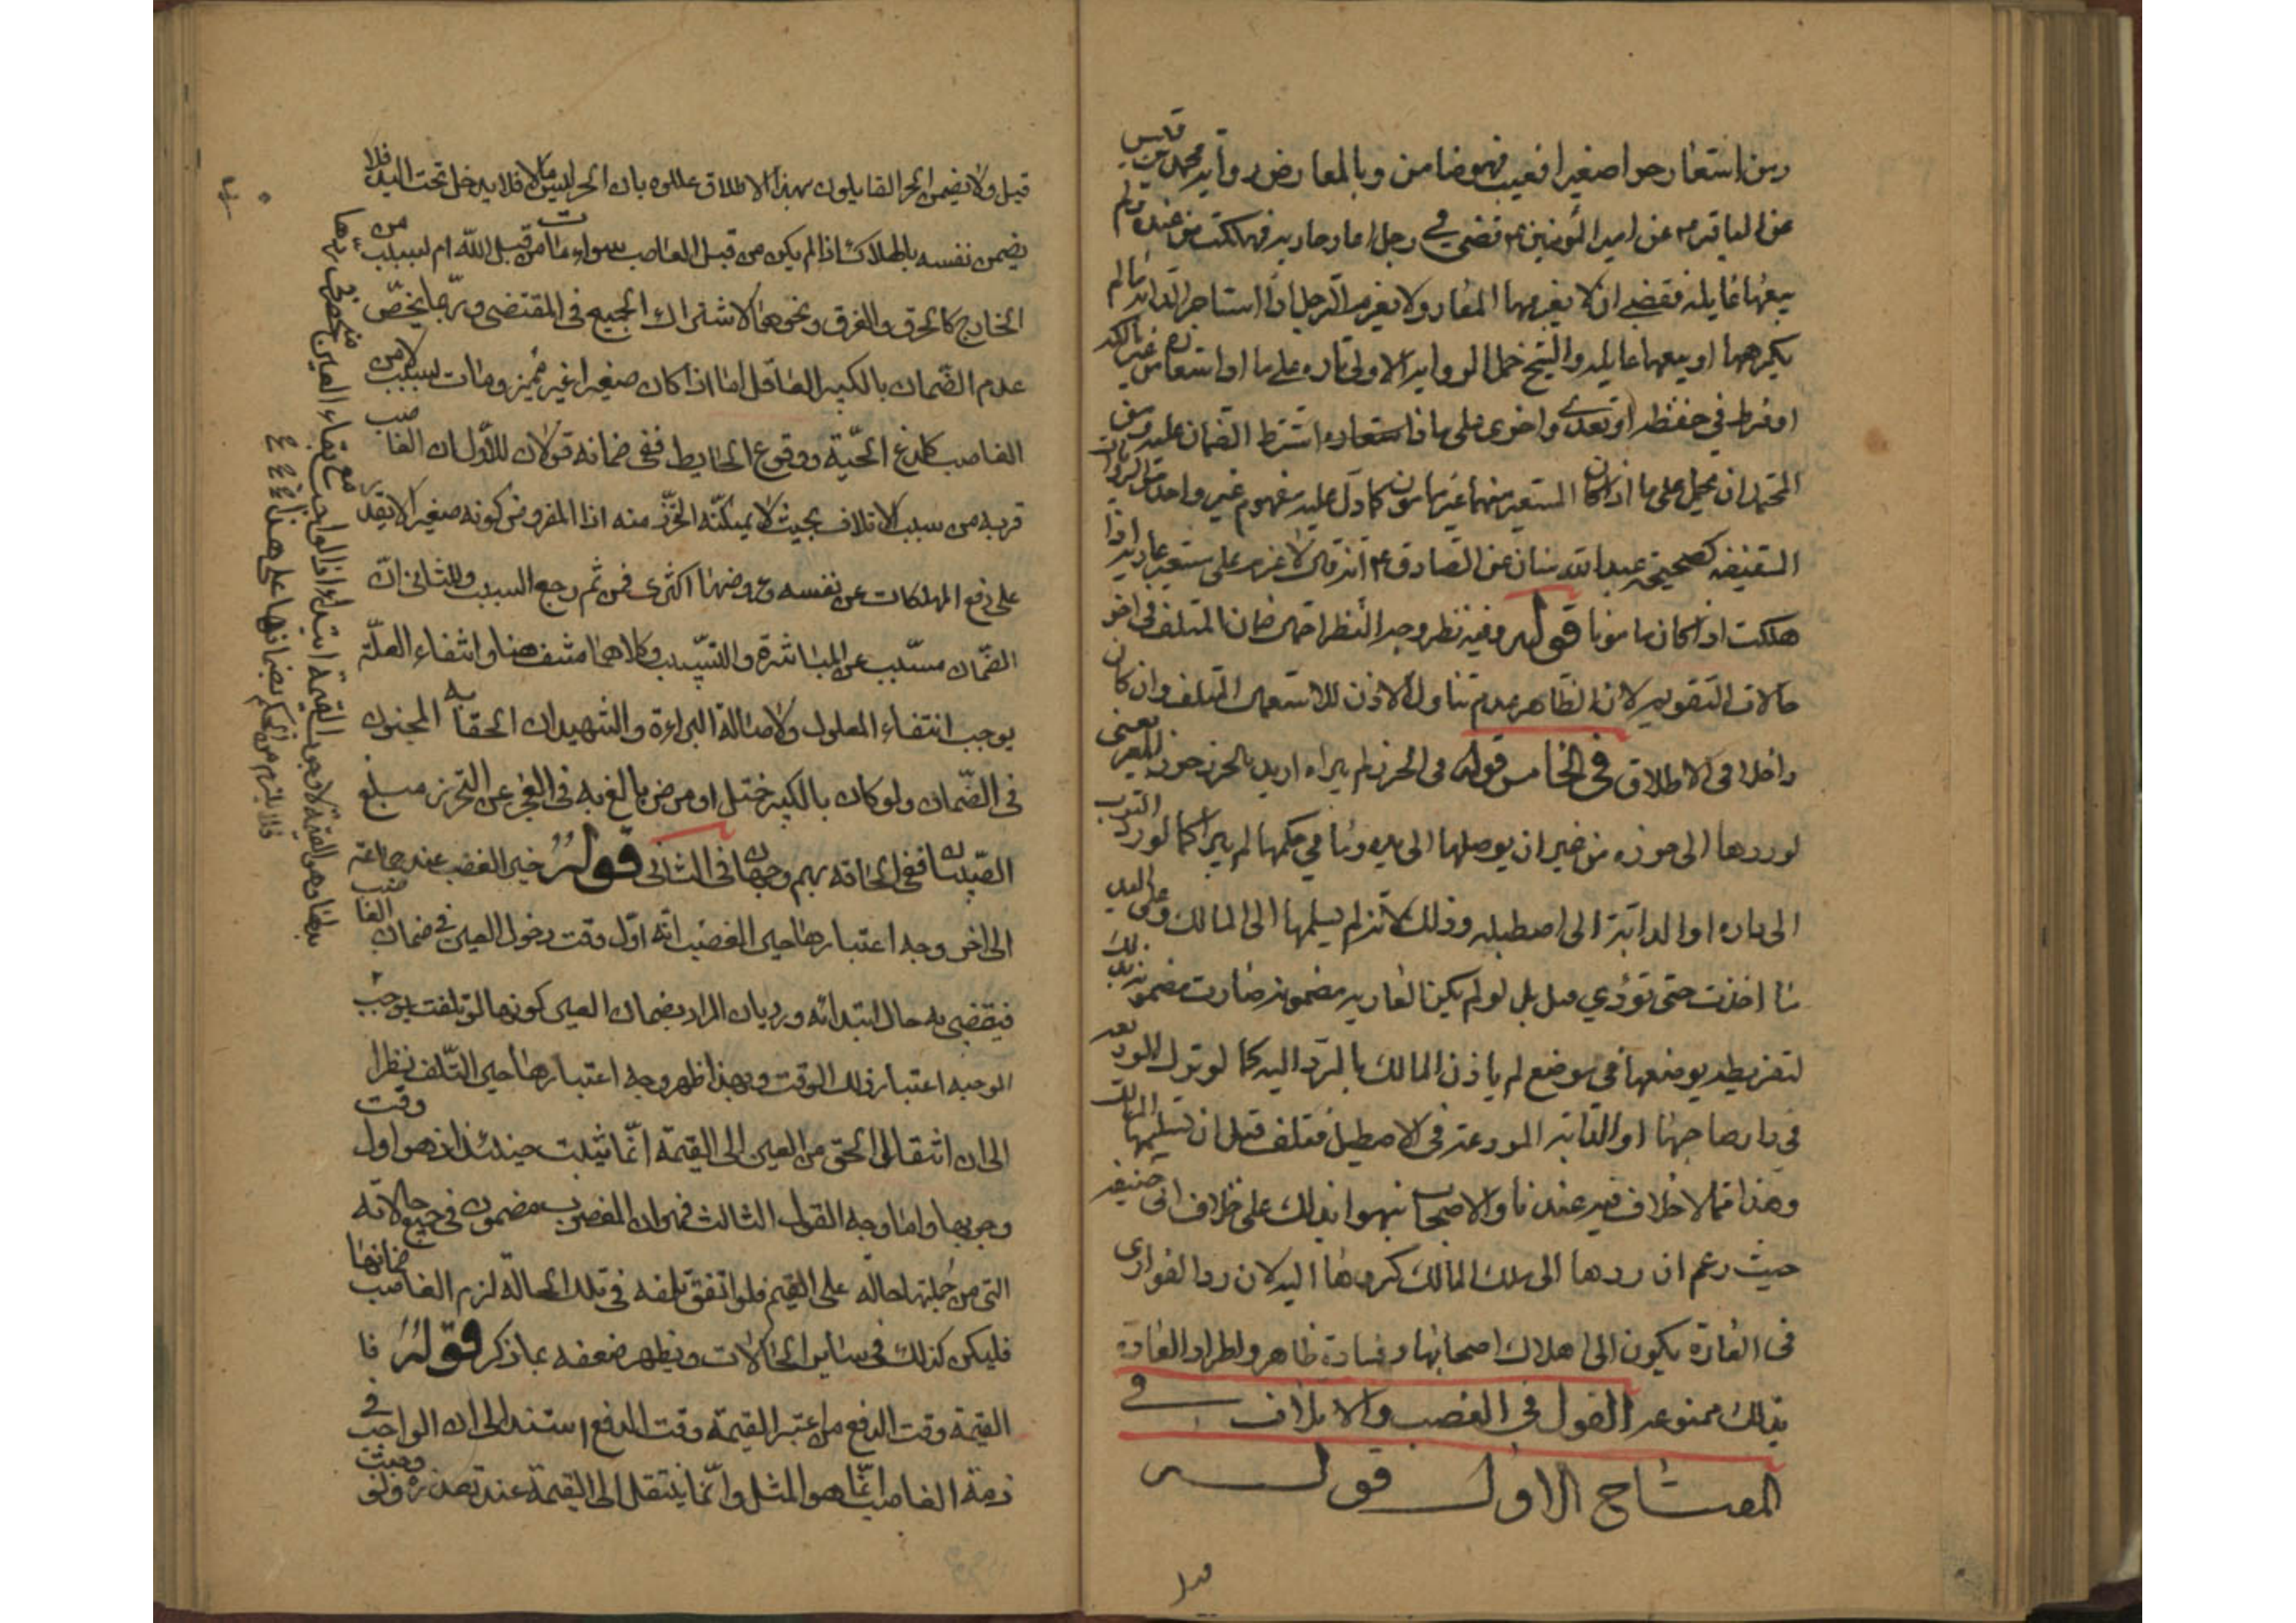 ومن استعار حرا صغيرا فعيب فهو ضامن وبالمعارض رواية محمد بن قيس
عن الباقر ع عن امير المؤمنين ع قضى في رجل اعار جارية فهلكت من عنده ولم
يبغها غايلة فقضى ان لا يغرمها المعار ولا يغرم الرجل اذا استاجر الدابة ما لم
يكرهها او يبغها غايلة والشيخ حمل الرواية الاولى تارة على ما اذا استعار من غير مالكه
او فرط في حفظه او تعدى واخرى على ما اذا استعاره اشترط الضمان عليه ومن
المحتمل ان يحمل على ما اذا كان المستعير متهما غير مامون كما دل عليه مفهوم غير واحد من الروايات
كصحيحة عبد الله سنان عن الصادق ع انه قال لا غرم على مستعير عارية اذا
هلكت اذا كان مامونا قوله وفيه نظر وجه النظر احتمال ضمان المتلف في اخر
حالات التقويم لان الظاهر عدم تناول الاذن للاستعمال المتلف وان كان
داخلا في الاطلاق في الخامس قوله في الحرز لم يبراء اريد بالحرز حرز المعير يعني
لو ردها الى حرزه من غير ان يوصلها الى يده وما في حكمها لم يبرا كما لو رد الثوب
الى داره او الدابة الى اصطبله وذلك لانه لم يسلمها الى المالك وعلى اليد
ما اخذت حتى تؤدي قيل بل لو لم يكن العارية مضمونة صارت مضمونة بذلك
لتفريطه بوضعها في موضع لم ياذن المالك بالرد اليه كما لو ترك الوديعة
في دار صاحبها او الدابة المودعة في الاصطبل فتلف قبل ان تسلمها المالك
وهذا مما لا خلاف فيه عندنا والاصحاب نبهوا بذلك على خلاف ابي حنيفة
حيث زعم ان ردها الى ملك المالك كردها اليه لان رد العواري
في العادة يكون الى املاك اصحابها وفساده ظاهر واطراد العادة
بذلك ممنوعة القول في الغصب والاتلاف في
المفتاح الاول قوله
قيل
قيل ولا يضمن الحر القايلون بهذا الاطلاق عللوه بان الحر ليس مالا فلا يدخل تحت اليد فلا
يضمن نفسه بالهلاك اذا لم يكن من قبل الغاصب سواء مات من قبل الله ام لسبب من
الخارج كالحرق والغرق ونحوهما لاشتراك الجميع في المقتضى وربما يخص
عدم الضمان بالكبير العاقل اما اذا كان صغيرا غير مميز ومات لسبب لا من
الغاصب كلدغ الحية ووقوع الحايط ففي ضمانه قولان للاول ان الغاصب
قربه من سبب الاتلاف بحيث لا يمكنه التحرز منه اذا المفروض كونه صغيرا لا يقدر
على دفع المهلكات عن نفسه وعروضها اكثري فمن ثم رجح السبب وللثاني ان
الضمان مسبب عن المباشرة والتسبيب وكلاهما منتف هنا وانتفاء العلة
يوجب انتفاء المعلول ولاصالة البراءة والشهيدان الحقا به المجنون
في الضمان ولو كان بالكبير خبل او مرض بالغ به في العجز عن التحرز مبلغ
الصبيان ففي الحاقه بهم وجهان في الثاني قوله حين الغصب عند جماعة
الى اخر وجه اعتبارها حين الغصب انه اول وقت دخول العين في ضمان الغاصب
فيقضى به حال ابتدائه ورد بان المراد بضمان العين كونها لو تلفت يوجب
الوجبه اعتبار ذلك الوقت وبهذا ظهر وجه اعتبارها حين التلف نظرا
الى ان انتقال الحق من العين الى القيمة انما ثبت حينئذ اذ هو اول وقت
وجوبها واما وجه القول الثالث فهو ان المغصوب مضمون في جميع حالاته
التي من جملتها حاله على القيم فلو اتفق تلفه في تلك الحالة لزم الغاصب ضمانها
فليكن كذلك في ساير الحالات ويظهر ضعفه بما ذكر قوله فا
القيمة وقت الدفع من اعتبر القيمة وقت الدفع استند الى ان الواجب في
ذمة الغاصب انما هو المثل وانما ينتقل الى القيمة عند تعذره ولو وجبت
القيمة ابتداء اذ الواجب مع بقاء العين منحصر في ردها